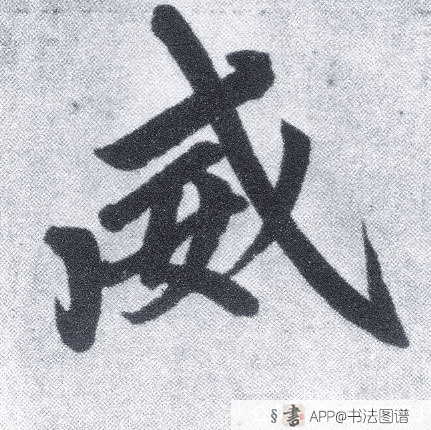 威
§ 書 APP@书法图谱